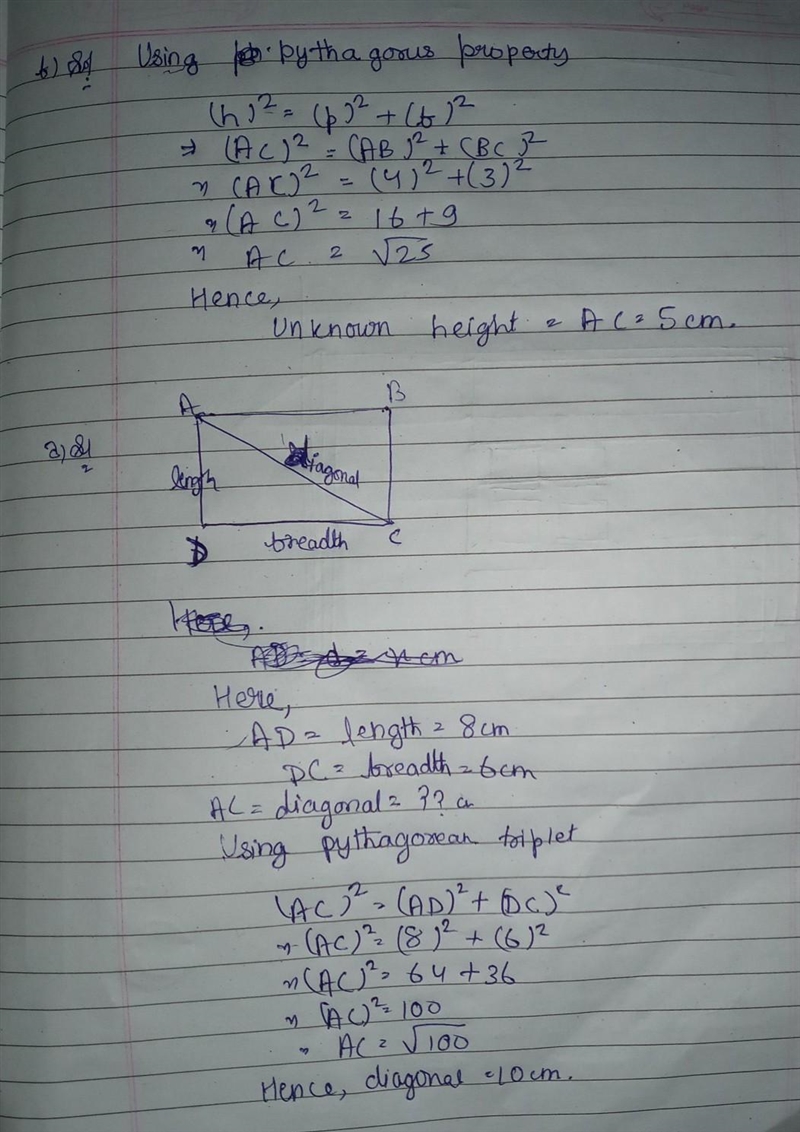 b) Sol Using pythagorus property
(h)² = (p)² + (b)²
⇒ (AC)² = (AB)² + (BC)²
⇒ (AC)² = (4)² + (3)²
⇒ (AC)² = 16 + 9
⇒ AC = √25
Hence,
Unknown height = AC = 5 cm.
A B
2) Sol
length diagonal
D breadth C
Here,
AD = length = 8 cm
DC = breadth = 6 cm
AC = diagonal = ??
Using pythagorean triplet
(AC)² = (AD)² + (DC)²
⇒ (AC)² = (8)² + (6)²
⇒ (AC)² = 64 + 36
⇒ (AC)² = 100
⇒ AC = √100
Hence, diagonal = 10 cm.